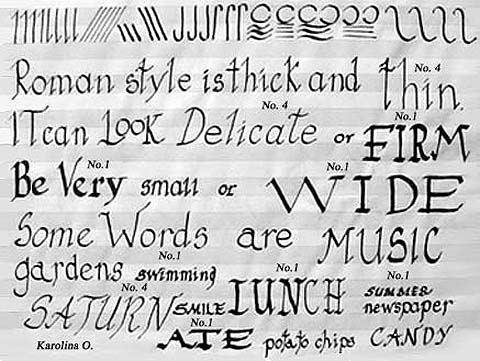 Roman style is thick and thin.
No. 4
No. 4
No.1
IT can LOOK Delicate or FIRM
No.1
No.1
Be Very small or WIDE
Some Words are MUSIC
No.1
No.1
No.1
gardens swimming
SUMMER
No. 4
SATURN SMILE LUNCH newspaper
No.1
Karolina O. ATE potato chips CANDY